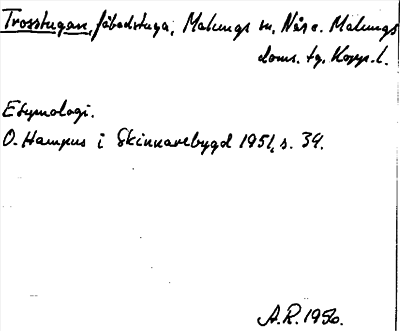 Trosstugan, fäbodstuga, Malungs sn, Nås o. Malungs
doms. tg, Kopp. l.
Etymologi.
O. Hampus i Skinnarebygd 1951, s. 34.
A.R. 1956.